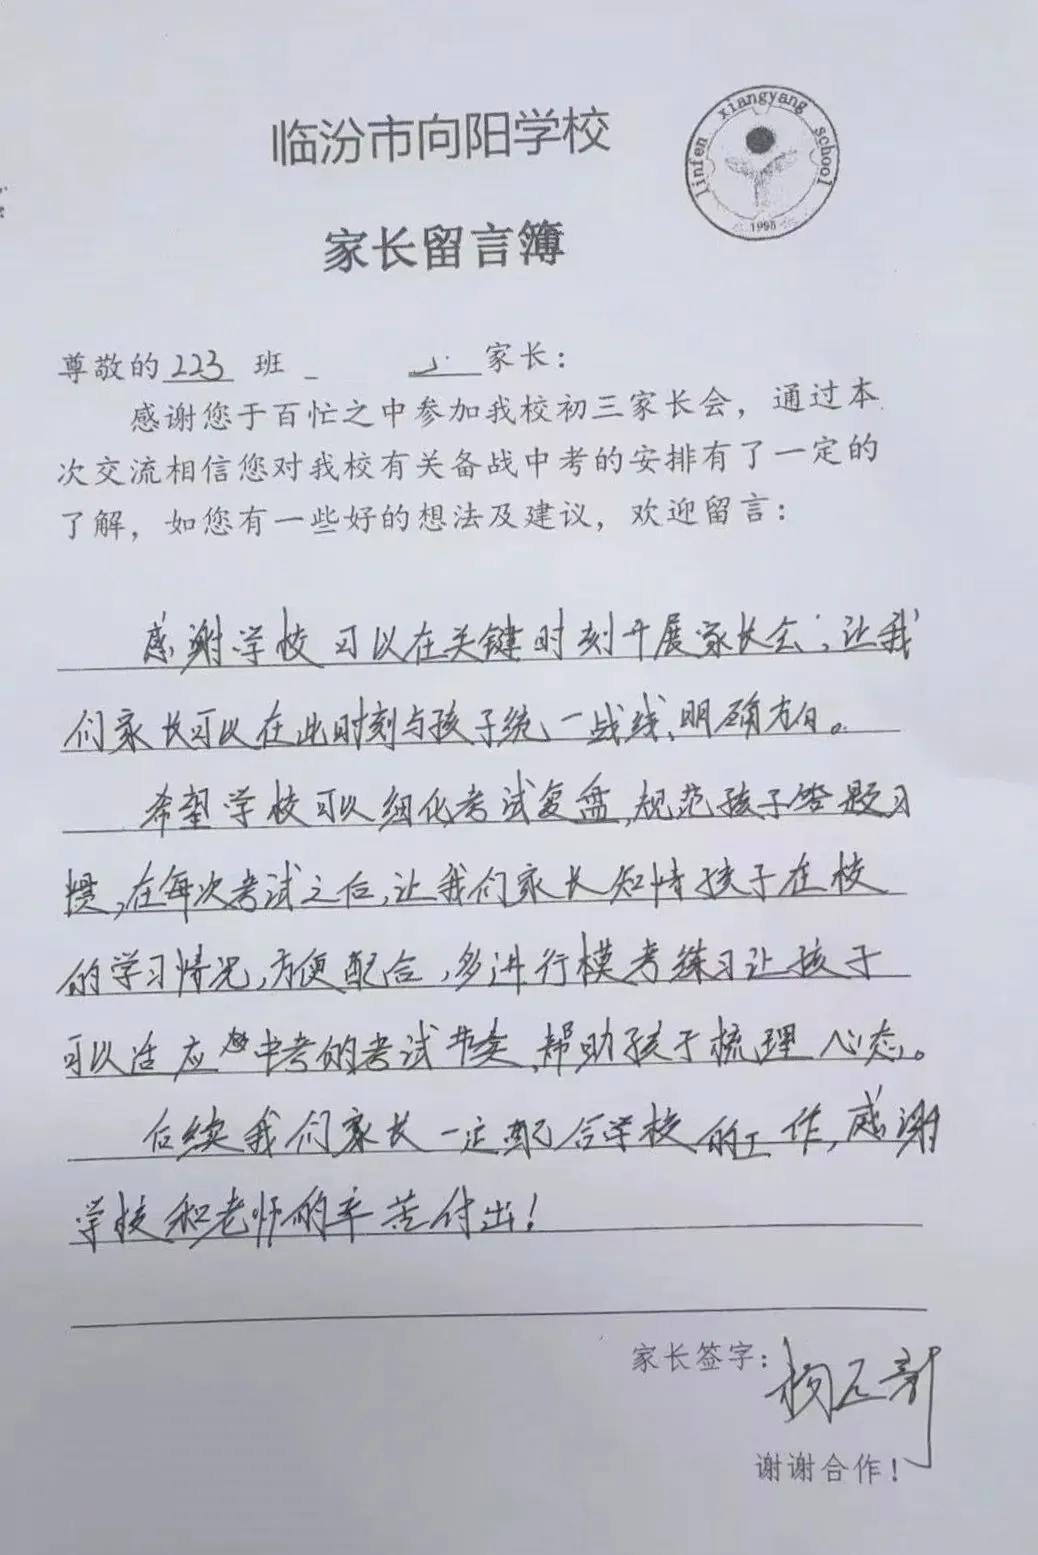 临汾市向阳学校
linfen xiangyang school
1995
家长留言簿
尊敬的 223 班 家长：
感谢您于百忙之中参加我校初三家长会，通过本
次交流相信您对我校有关备战中考的安排有了一定的
了解，如您有一些好的想法及建议，欢迎留言：
感谢学校可以在关键时刻开展家长会，让我
们家长可以在此时刻与孩子统一战线、明确方向。
希望学校可以细化考试复盘，规范孩子答题习
惯，在每次考试之后，让我们家长知情孩子在校
的学习情况，方便配合，多进行模考练习让孩子
可以适应中考的考试节奏，帮助孩子梳理心态。
后续我们家长一定配合学校的工作，感谢
学校和老师的辛苦付出！
家长签字：杨
谢谢合作！